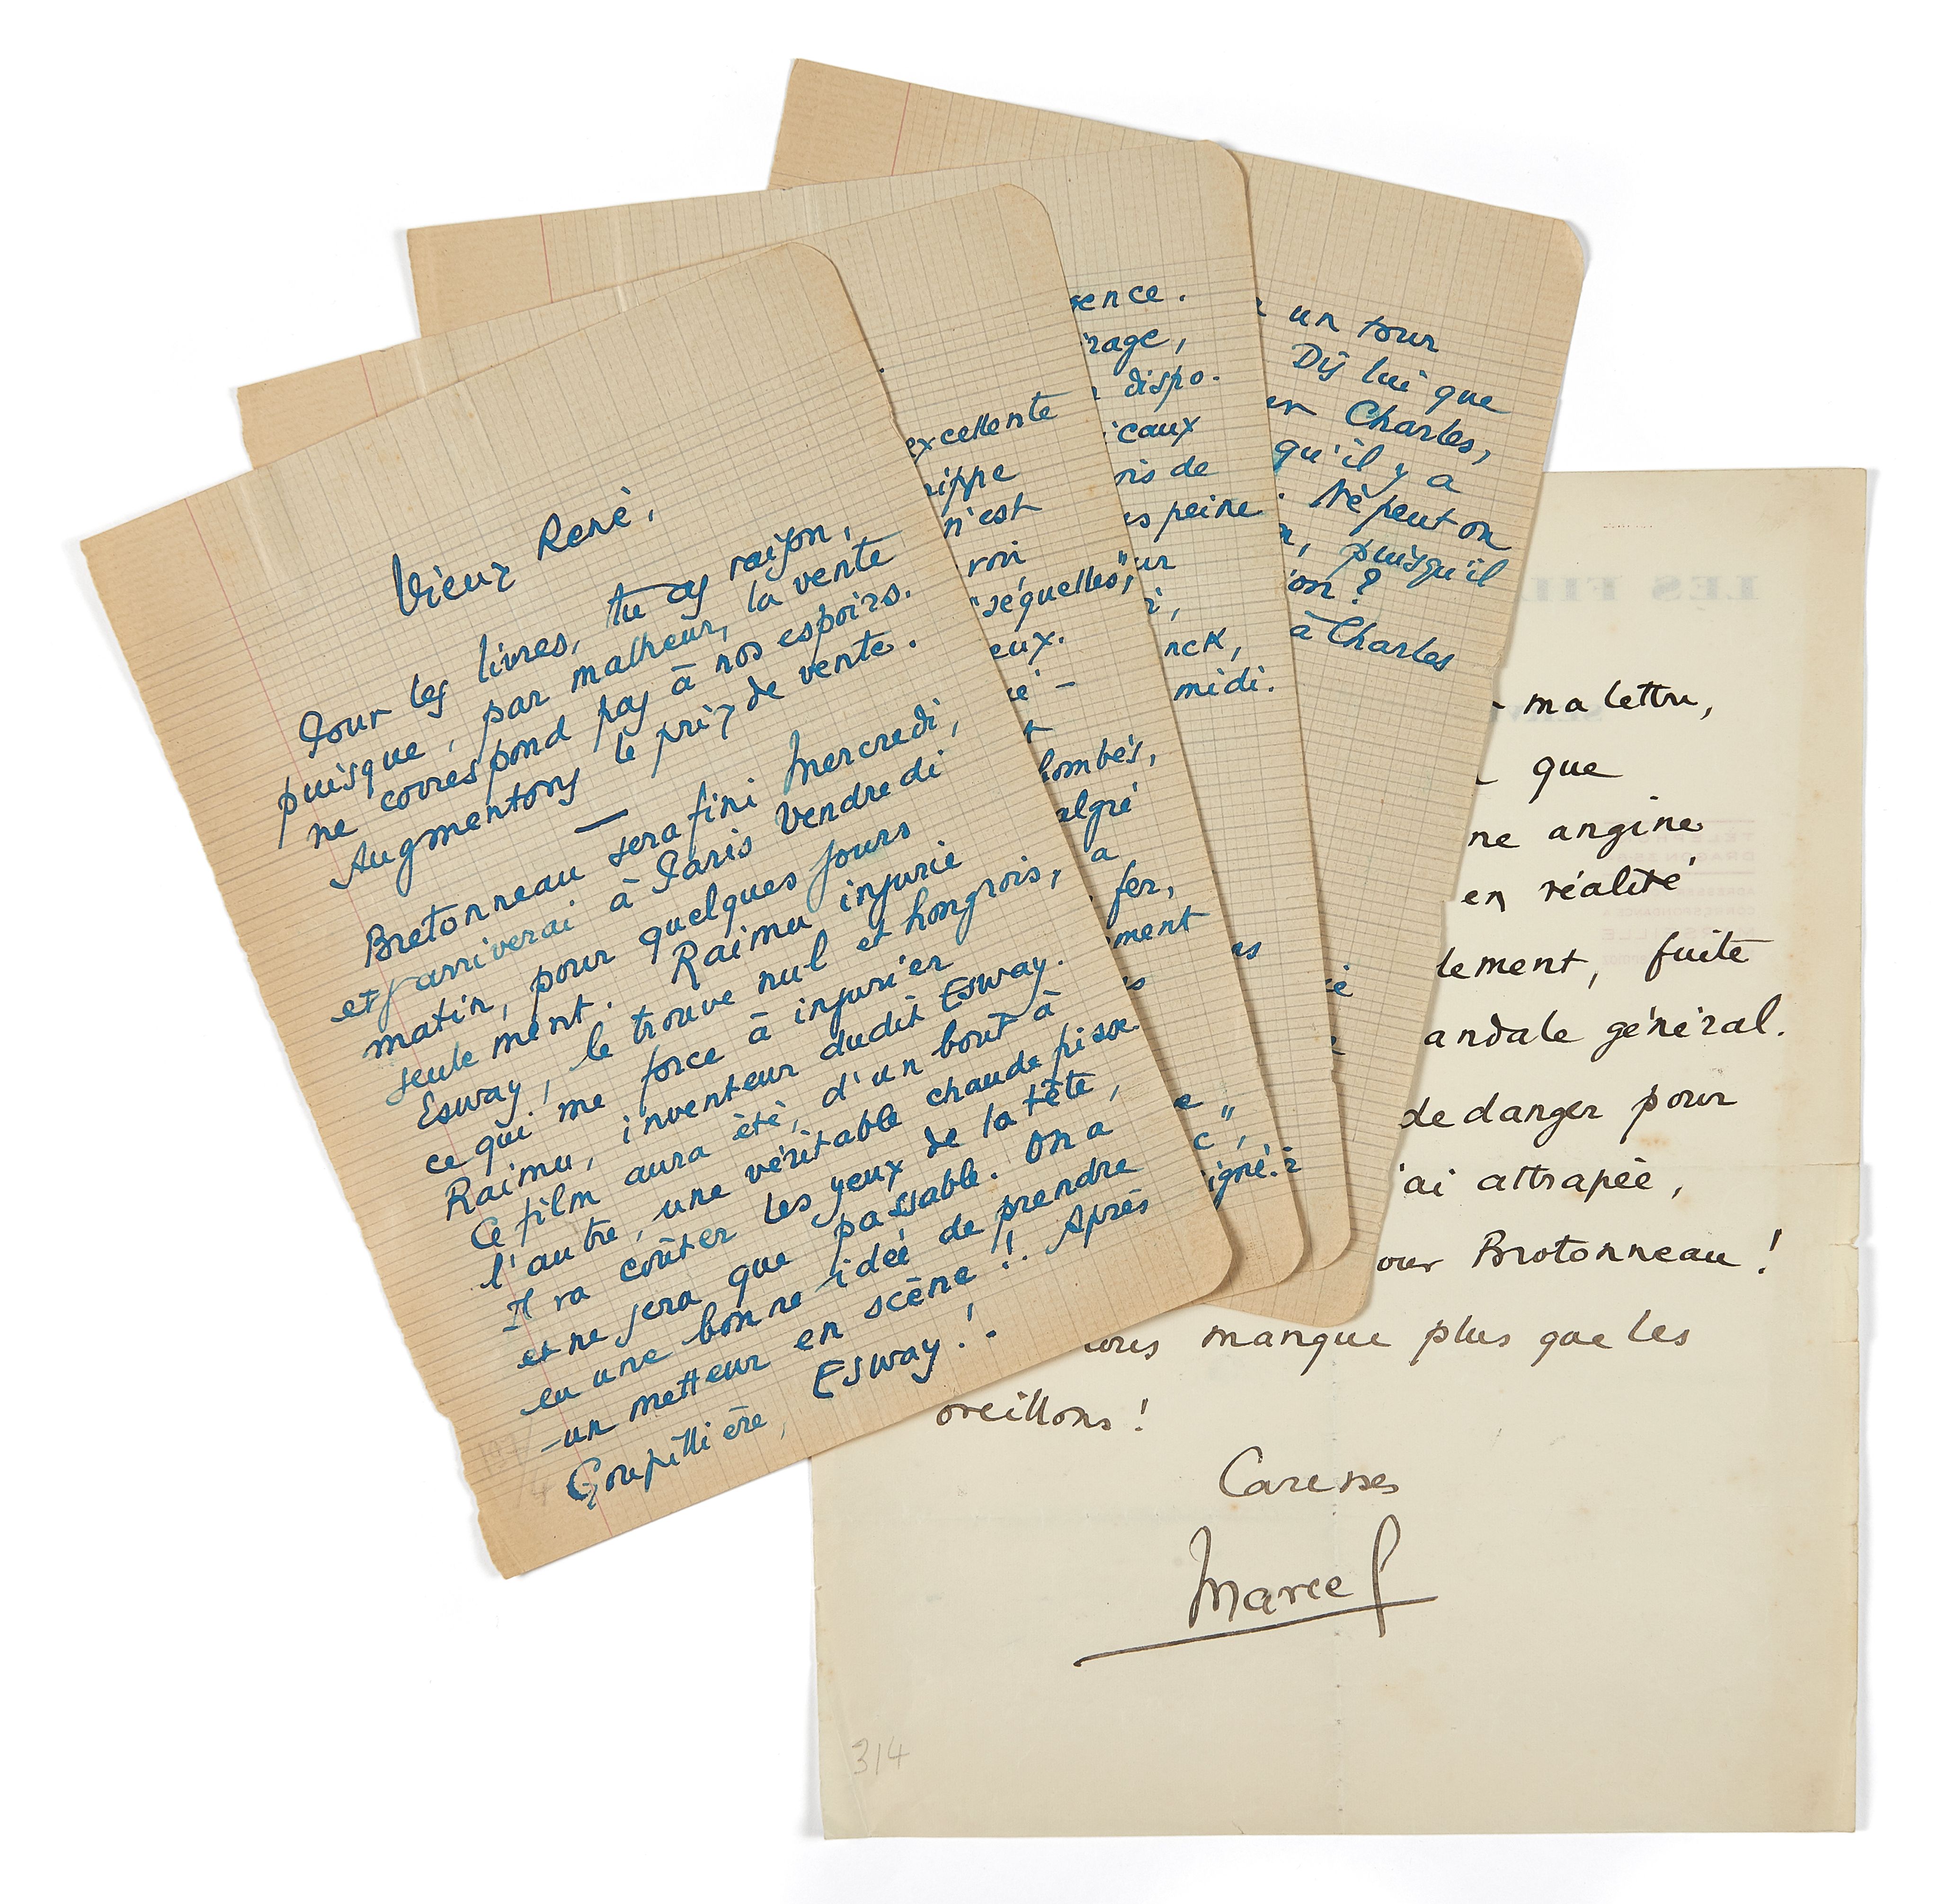 Vieux René,
Pour les livres, tu as raison,
puisque, par malheur, la vente
ne correspond pas à nos espoirs.
Augmentons le prix de vente.
—
Bretonneau sera fini Mercredi,
et j'arriverai à Paris Vendredi
matin, pour quelques jours
seulement. Raimu injurie
Esway, le trouve nul et hongrois,
ce qui me force à injurier
Raimu, inventeur dudit Esway.
Ce film aura été, d'un bout à
l'autre, une véritable chaude pisse
Il va coûter les yeux de la tête,
et ne sera que passable. On a
eu une bonne idée de prendre
un metteur en scène !. Après
Goupillière, Esway !.
excellente
n'est
"séquelles",
eux.
lombés,
algré
a
fer,
ment
rage,
dispo.
icaux
peine
ur
nck,
midi.
c",
un tour
Dis lui que
Charles,
qu'il y a
Ne peut on
puisqu'il
on ?
à Charles
ma lettre,
que
ne angine
en réalité
lement, fuite
andale général.
de danger pour
'ai attrapée,
our Brotonneau !
manque plus que les
oreillons !
Caresses
Marcel
314